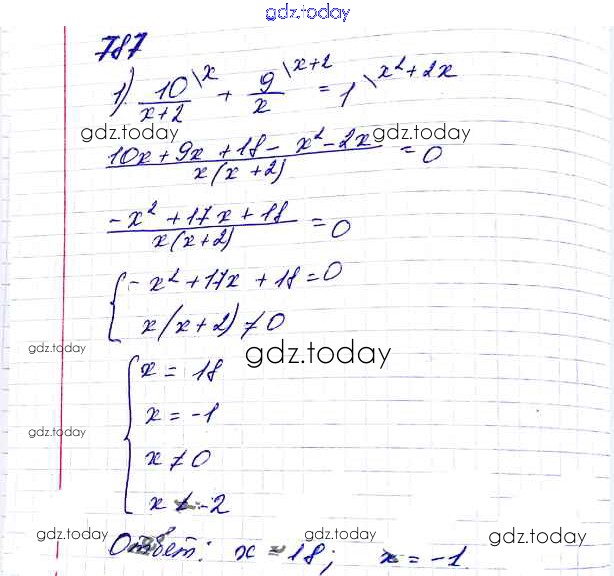 gdz.today
787
1) 10/(x+2) \x + 9/x \x+2 = 1 \x²+2x
gdz.today gdz.today gdz.today
(10x + 9x + 18 - x² - 2x)/(x(x+2)) = 0
(-x² + 17x + 18)/(x(x+2)) = 0
{ -x² + 17x + 18 = 0
x(x+2) ≠ 0
gdz.today gdz.today
{ x = 18
x = -1
gdz.today
x ≠ 0
x ≠ -2
gdz.today gdz.today gdz.today
Ответ: x = 18; x = -1.